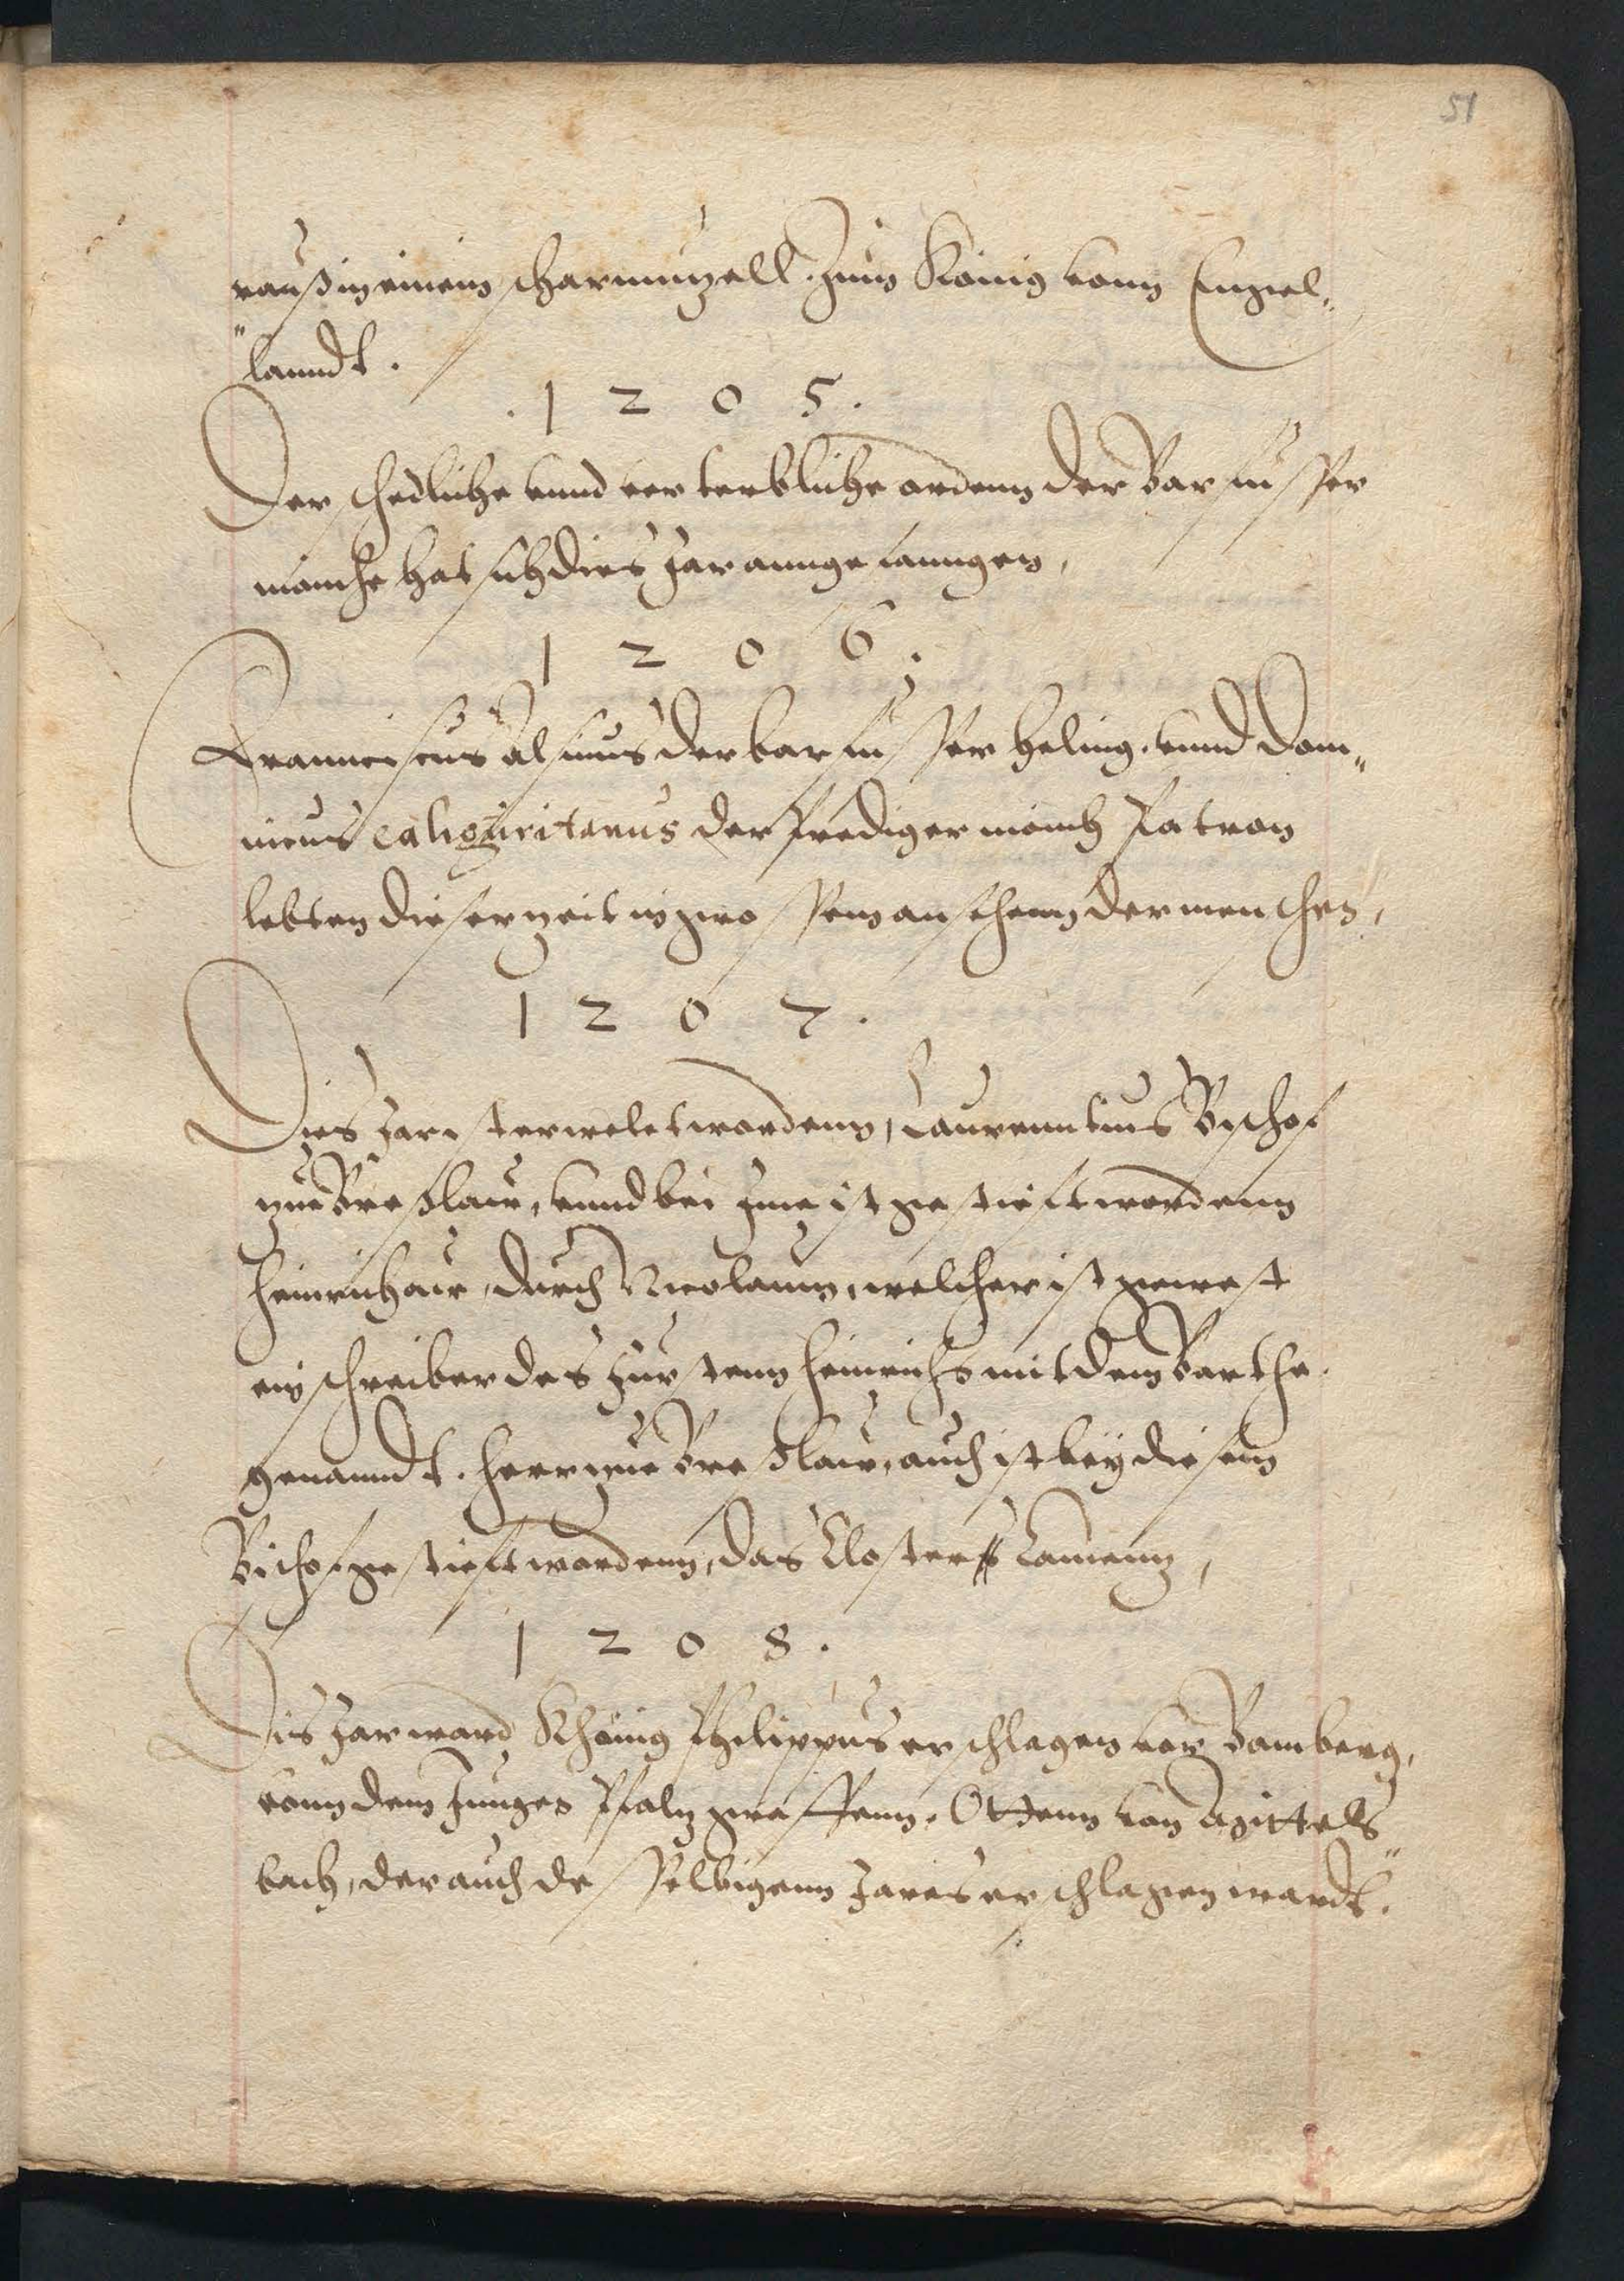 51
rauß in einem scharmutzell. zum König vonn Engel„
„lanndt.
. 1 2 0 5 .
Der schedliche vnnd verterbliche ordenn der Barfusser
monche hat sich dies Jar annge fanngen,
1 2 0 6 .
Frannciscus Asisius der barfusser heling. vnnd Dom„
nicus caliguritanus der prediger monch Patron
lebten dieser zeit in grossem ansehenn der menschen,
1 2 0 7 .
Dies Jar ist erwelet wordenn, Laurenntius Bischof
zue Breßlaw, vnnd bei Jme ist gestieft wordenn
Heinrichaw, durch Nicolaum, welcher ist gewest
ein schreiber des Fürstenn Heinrichs mit dem Barthe.
genanndt. Herr zue Breßlaw, auch ist beÿ diesem
Bischof gestieft wordenn, das Closter Camenz,
1 2 0 8 .
Dis Jar ward Khönig Philippus erschlagen vor Bamberg,
vonn dem Jungen Pfaltzgraffenn, Ottenn von Wittels„
bach, der auch desselbigenn Jares erschlagen wardt.